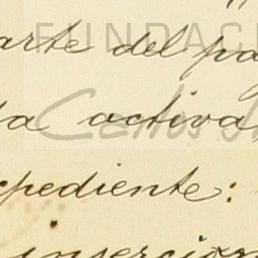 FUNDACI
arte del pa
ta activa,
Carlos
xpediente:
insercion